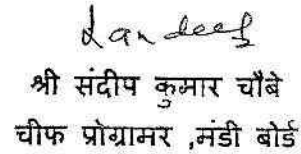 Sandeep
श्री संदीप कुमार चौबे
चीफ प्रोग्रामर ,मंडी बोर्ड